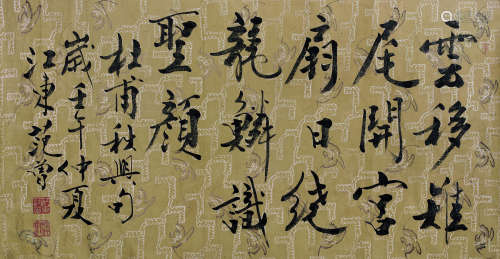 雲移雉
尾開宮
扇日繞
龍鱗識
聖顏
杜甫秋興句
歲壬午仲夏
江東范曾